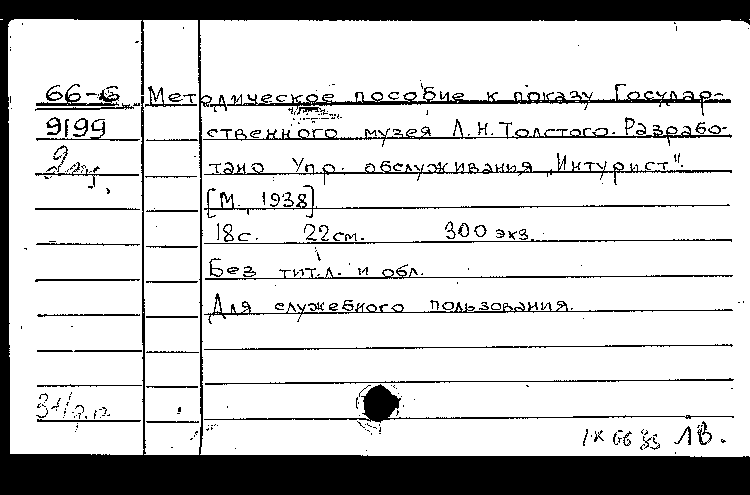 66-6 Методическое пособие к показу Государ-
9199 ственного музея Л.Н.Толстого. Разрабо-
тано Упр. обслуживания „Интурист".
[М., 1938]
18с. 22см. 300 экз.
Без тит.л. и обл.
Для служебного пользования.
1К 66 ЛВ.